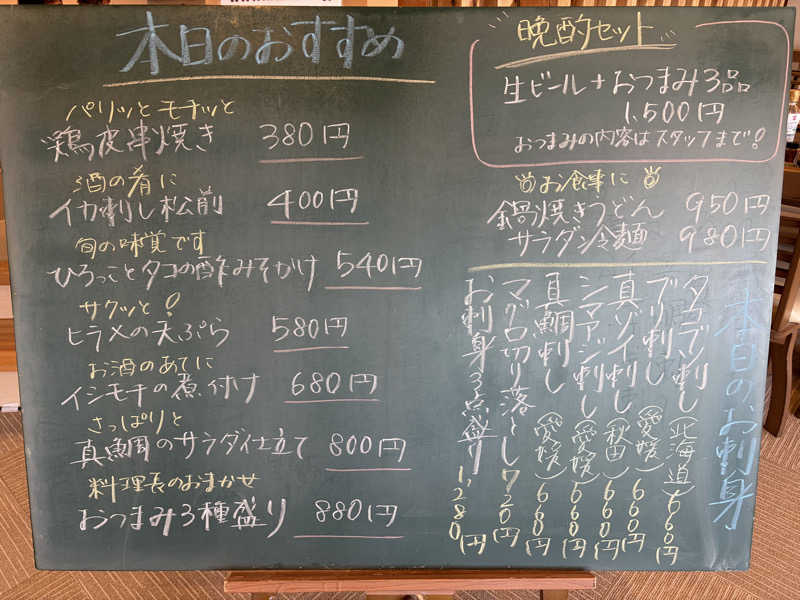 本日のおすすめ
パリッとモチッと
鶏皮串焼き 380円
酒の肴に
イカ刺し松前 400円
旬の味覚です
ひろっことタコの酢みそかけ 540円
サクッと!
ヒラメの天ぷら 580円
お酒のあてに
イシモチの煮付け 680円
さっぱりと
真鯛のサラダ仕立て 800円
料理長のおまかせ
おつまみ3種盛り 880円
晩酌セット
生ビール+おつまみ3品
1,500円
おつまみの内容はスタッフまで!
お食事に
鍋焼きうどん 950円
サラダ冷麺 980円
本日のお刺身
タコブツ刺し(北海道)660円
ブリ刺し(愛媛)660円
真ゾイ刺し(秋田)660円
シマアジ刺し(愛媛)660円
真鯛刺し(愛媛)660円
マグロ切り落とし720円
お刺身3点盛り1,280円